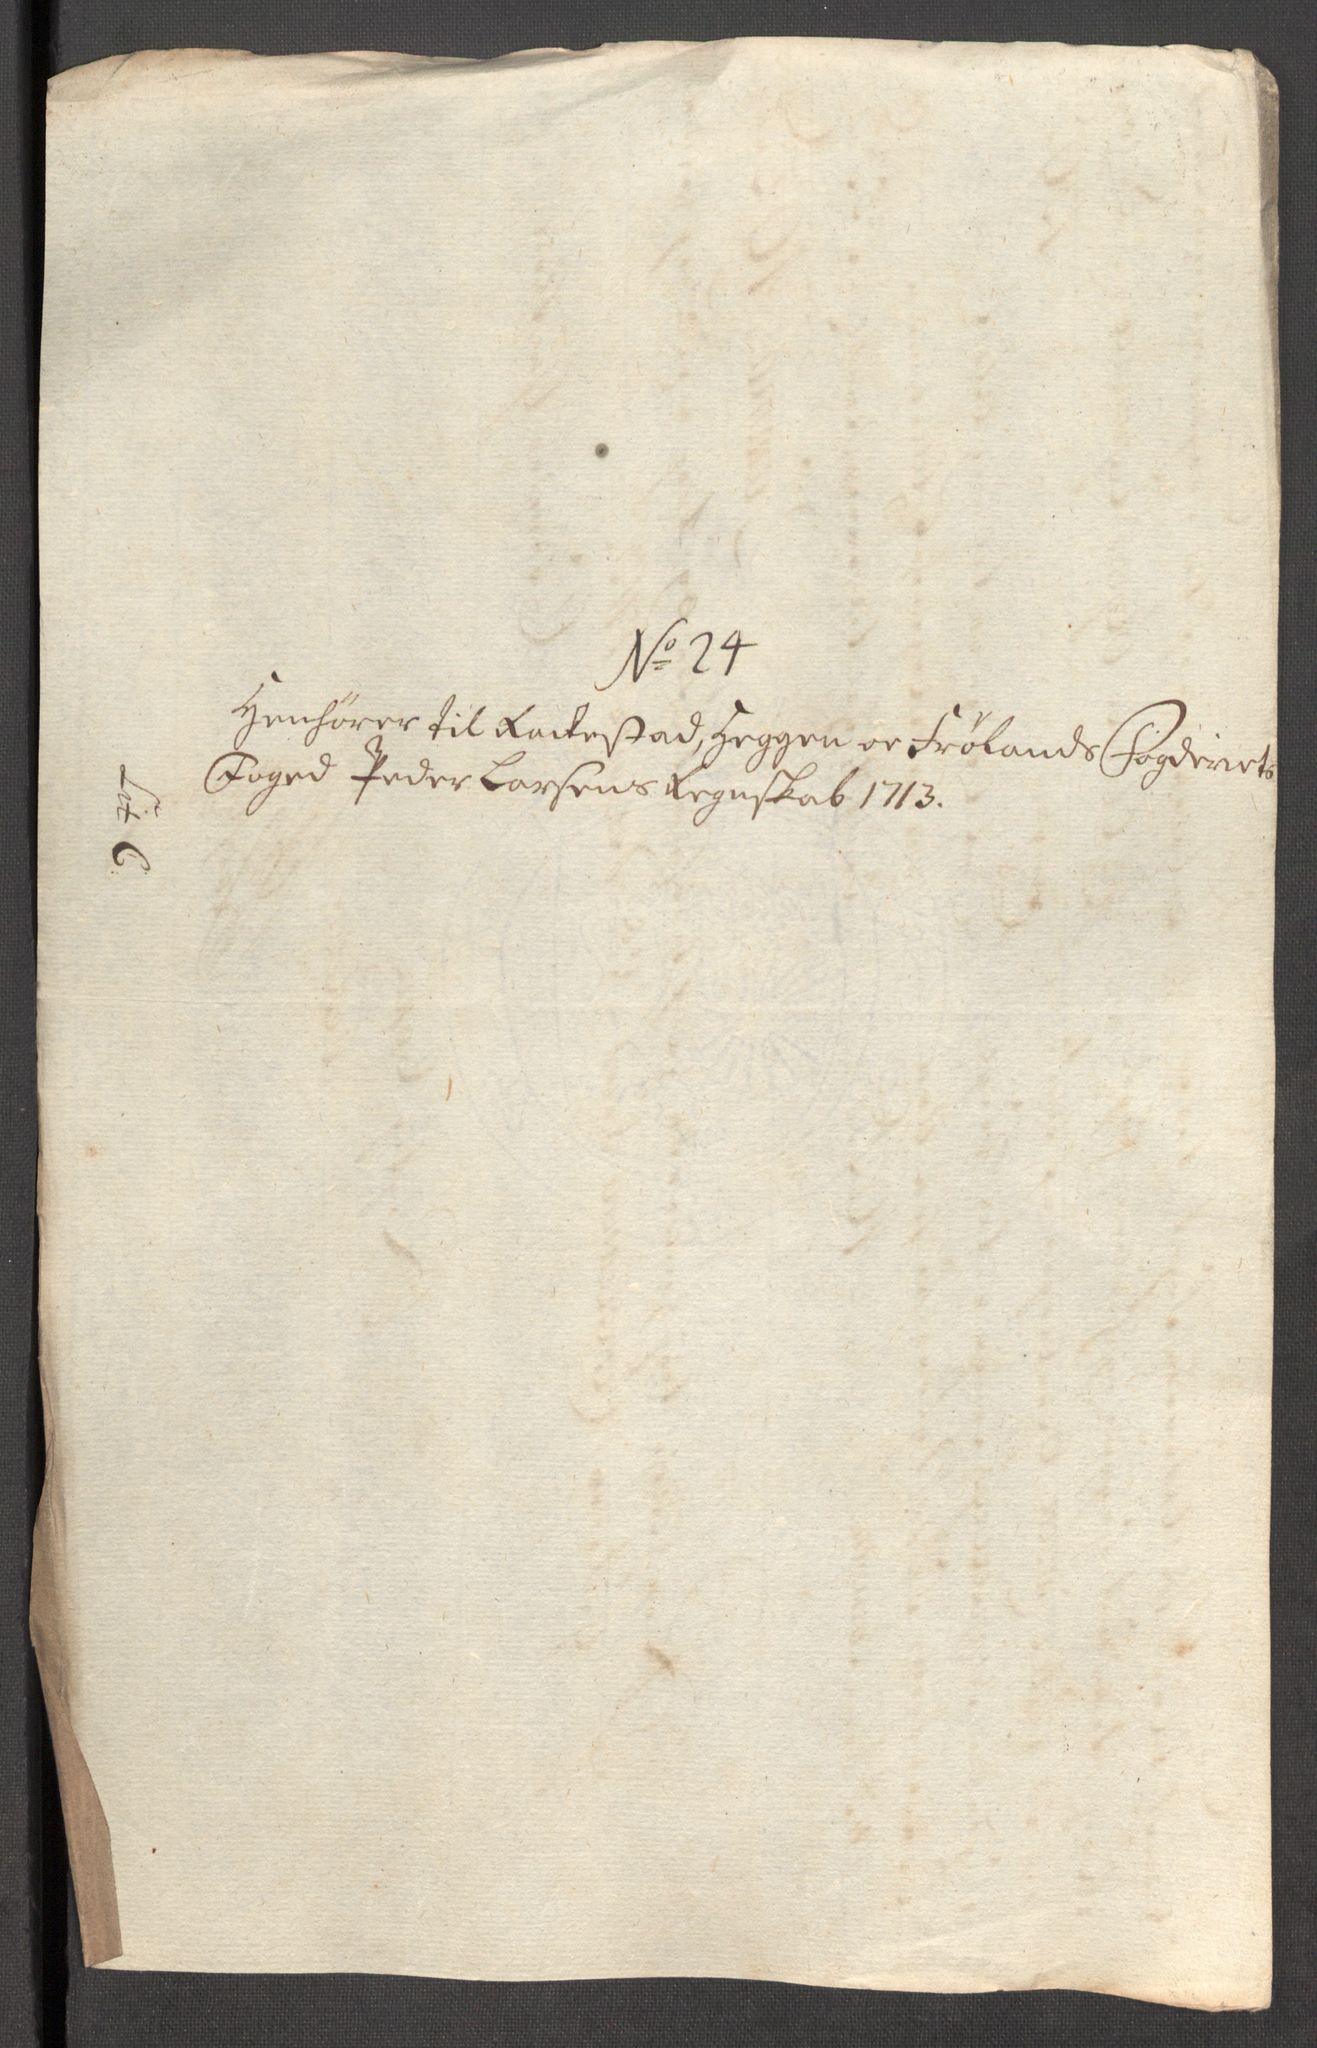 No 24
Henhörer til Rackestad, Heggen oc Frölands Fogderiets
Foged Peder Larsens Regnskab 1713.